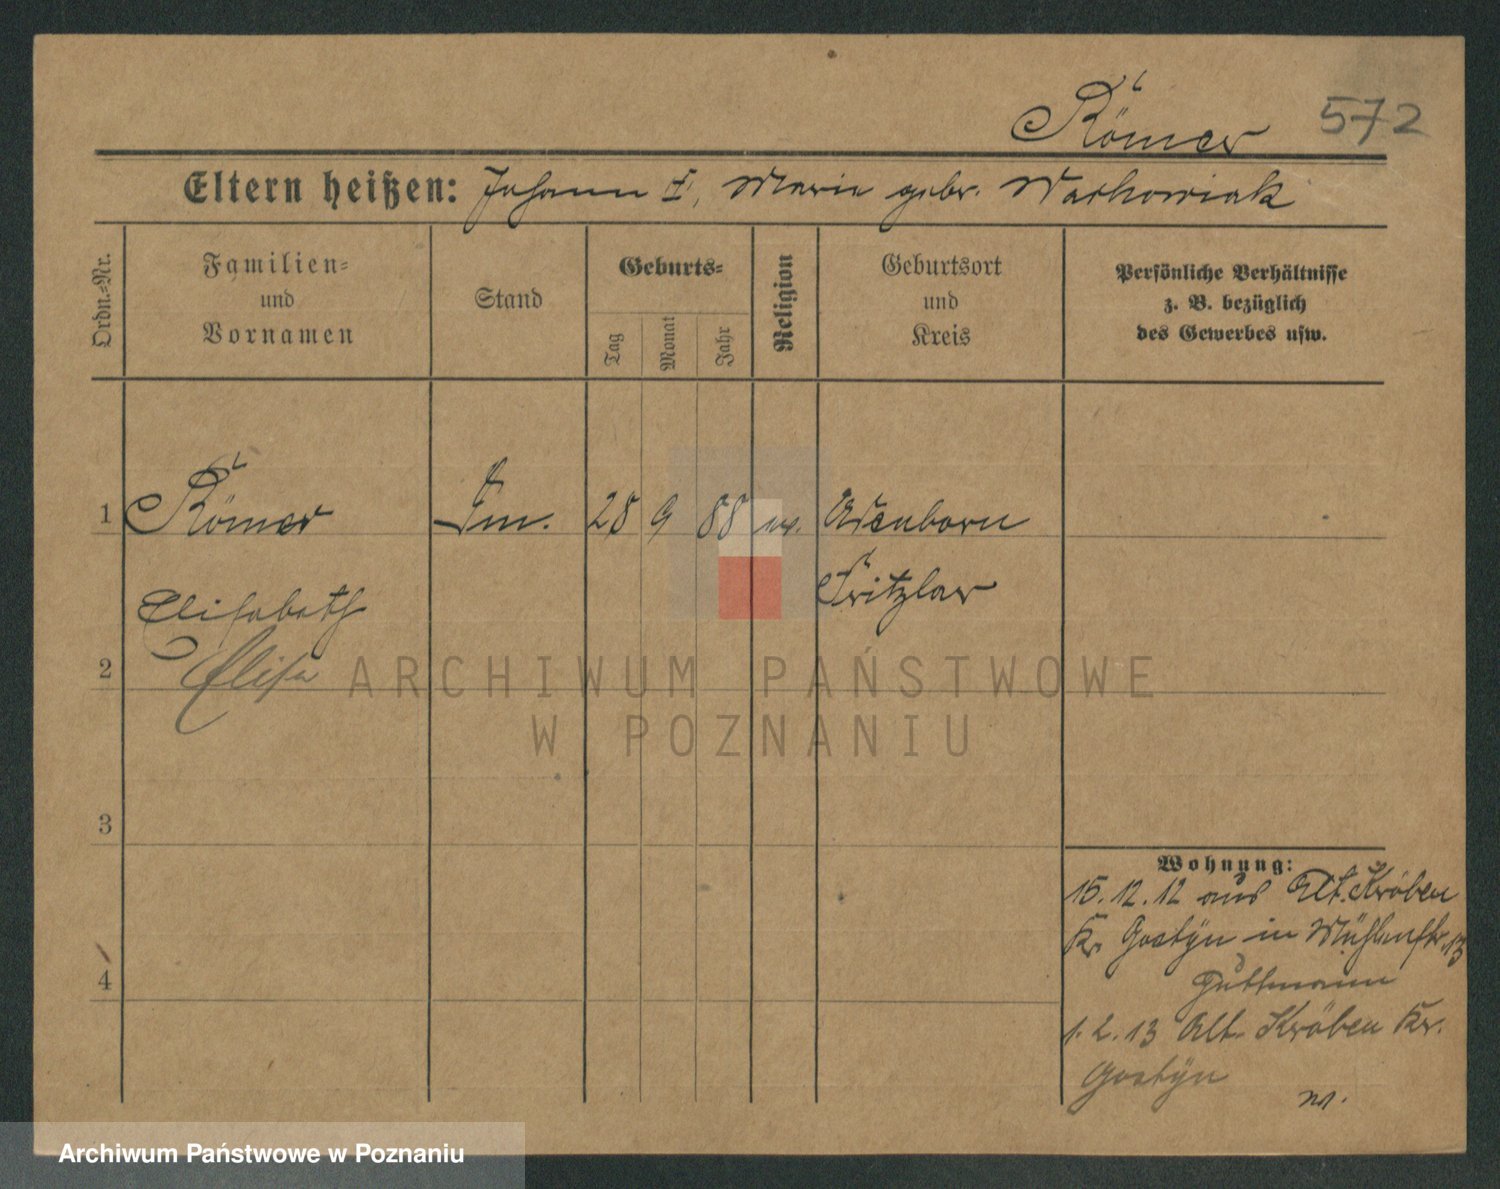 Römer 572
Eltern heißen: Johann †, Marie gebr. Markowiak
Ordn.-Nr.
Familien-
und
Vornamen
Stand
Geburts-
Tag
Monat
Jahr
Religion
Geburtsort
und
Kreis
Persönliche Verhältnisse
z. B. bezüglich
des Gewerbes usw.
1 Römer 28 9 88
Fritzlar
Elisabeth
2 Elisa
ARCHIWUM PAŃSTWOWE
W POZNANIU
3
Wohnung:
15. 12. 12 aus Alt. Kröben
Kr. Gostÿn in Mühlenstr. 13
Guttmann
4
1. 2. 13 Alt. Kröben Kr.
Gostÿn
Archiwum Państwowe w Poznaniu